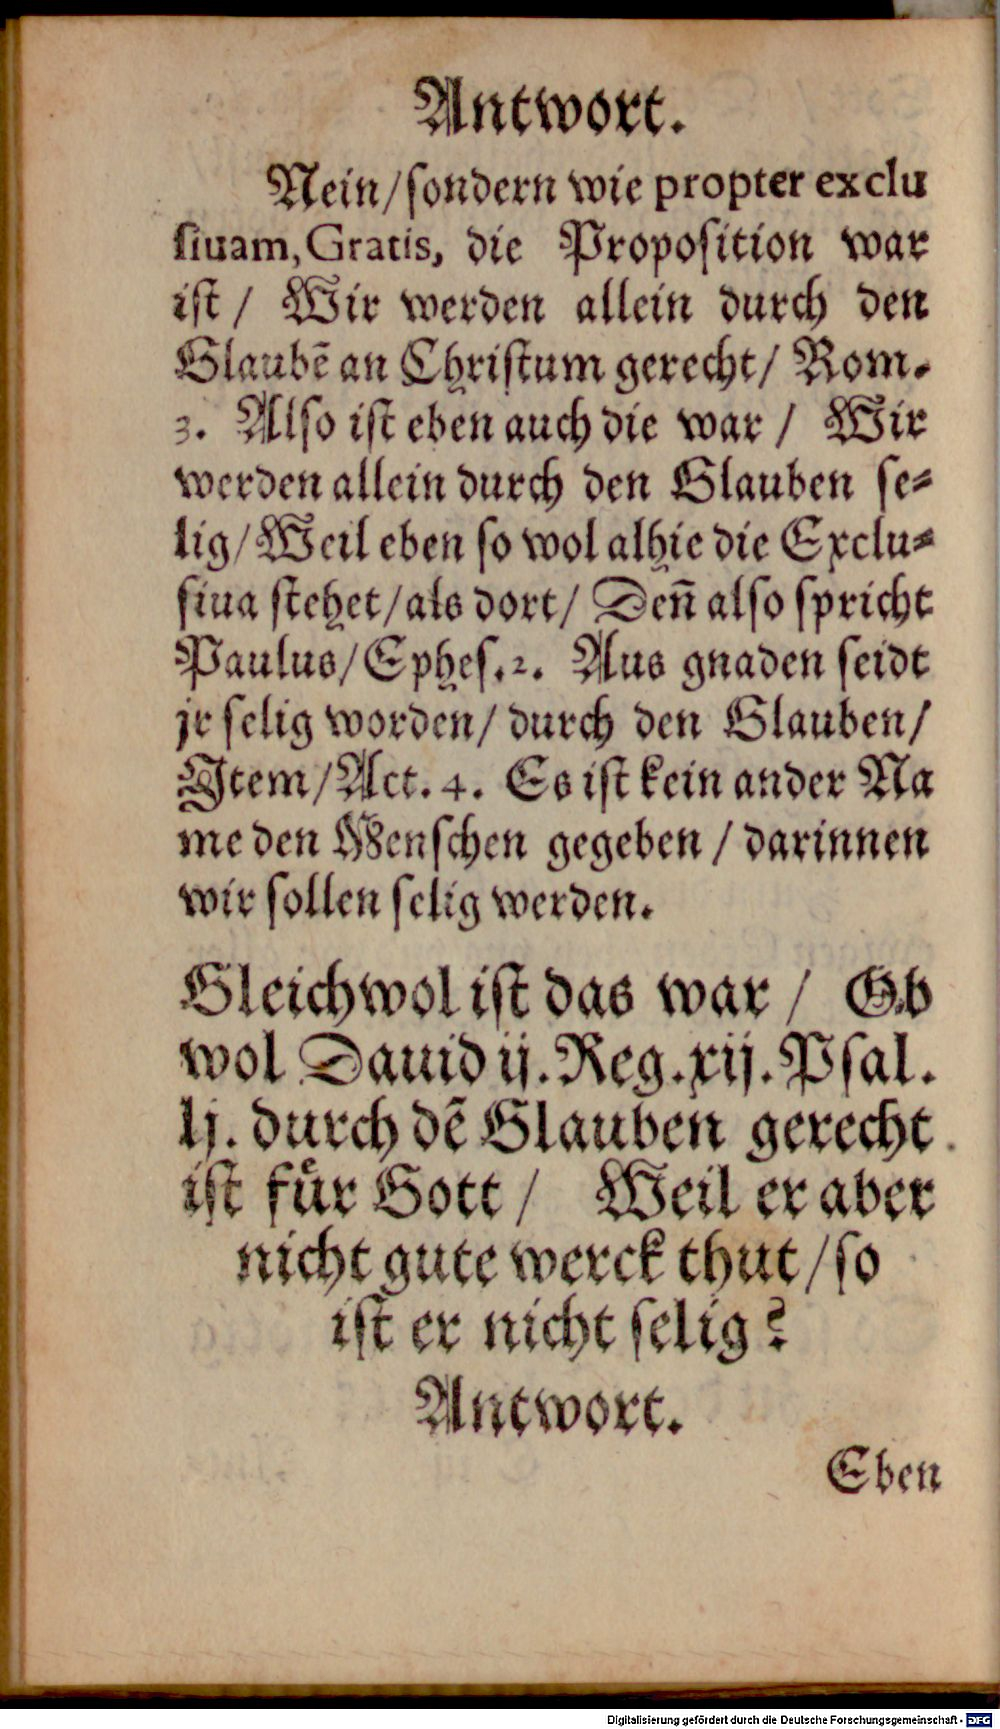 Antwort.
Nein/ sondern wie propter exclu
siuam, Gratis, die Proposition war
ist / Wir werden allein durch den
Glaubē an Christum gerecht/ Rom.
3. Also ist eben auch die war / Wir
werden allein durch den Glauben se-
lig/ Weil eben so wol alhie die Exclu-
siua stehet/ als dort/ Deñ also spricht
Paulus/ Ephes. 2. Aus gnaden seidt
jr selig worden/ durch den Glauben/
Item/ Act. 4. Es ist kein ander Na
me den Menschen gegeben / darinnen
wir sollen selig werden.
Gleichwol ist das war / Ob
wol Dauid ij. Reg. xij. Psal.
lj. durch dē Glauben gerecht
ist fuͤr Gott / Weil er aber
nicht gute werck thut / so
ist er nicht selig?
Antwort.
Eben
Digitalisierung gefördert durch die Deutsche Forschungsgemeinschaft - DFG